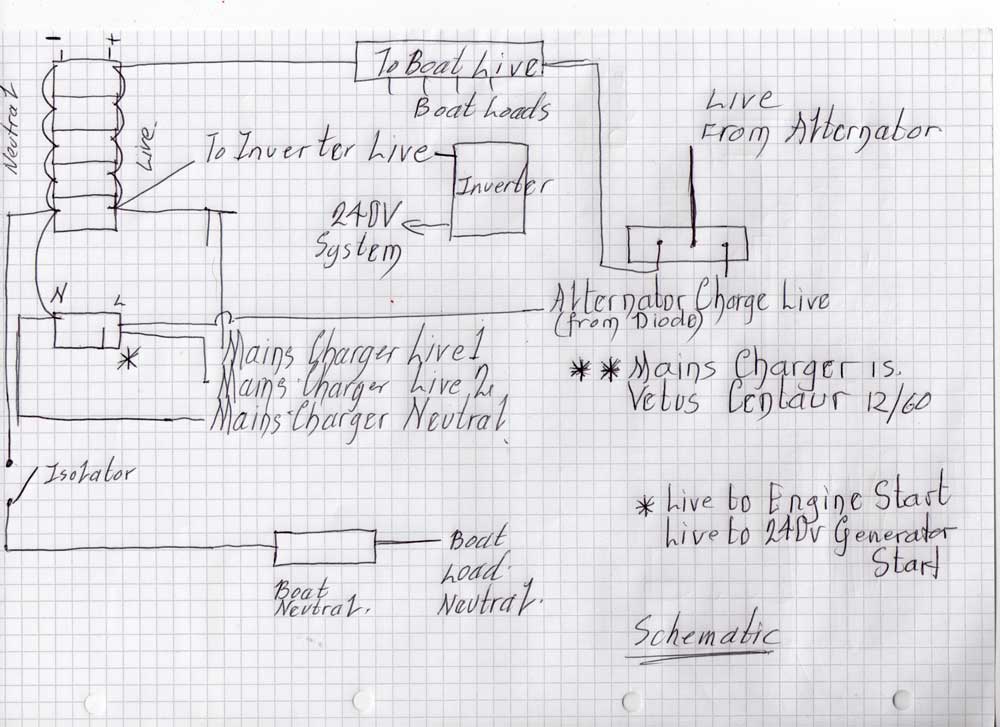 - - +
Neutral
Live.
To Boat Live
Boat Loads
Live
From Alternator
To Inverter Live
Inverter
240V
System
N L
*
Alternator Charge Live
(from Diode)
Mains Charger Live 1
Mains Charger Live 2.
Mains Charger Neutral
** Mains Charger is.
Vetus Centaur 12/60
Isolator
* Live to Engine Start
Live to 240v Generator
Start
Boat
Neutral.
Boat
Load.
Neutral.
Schematic